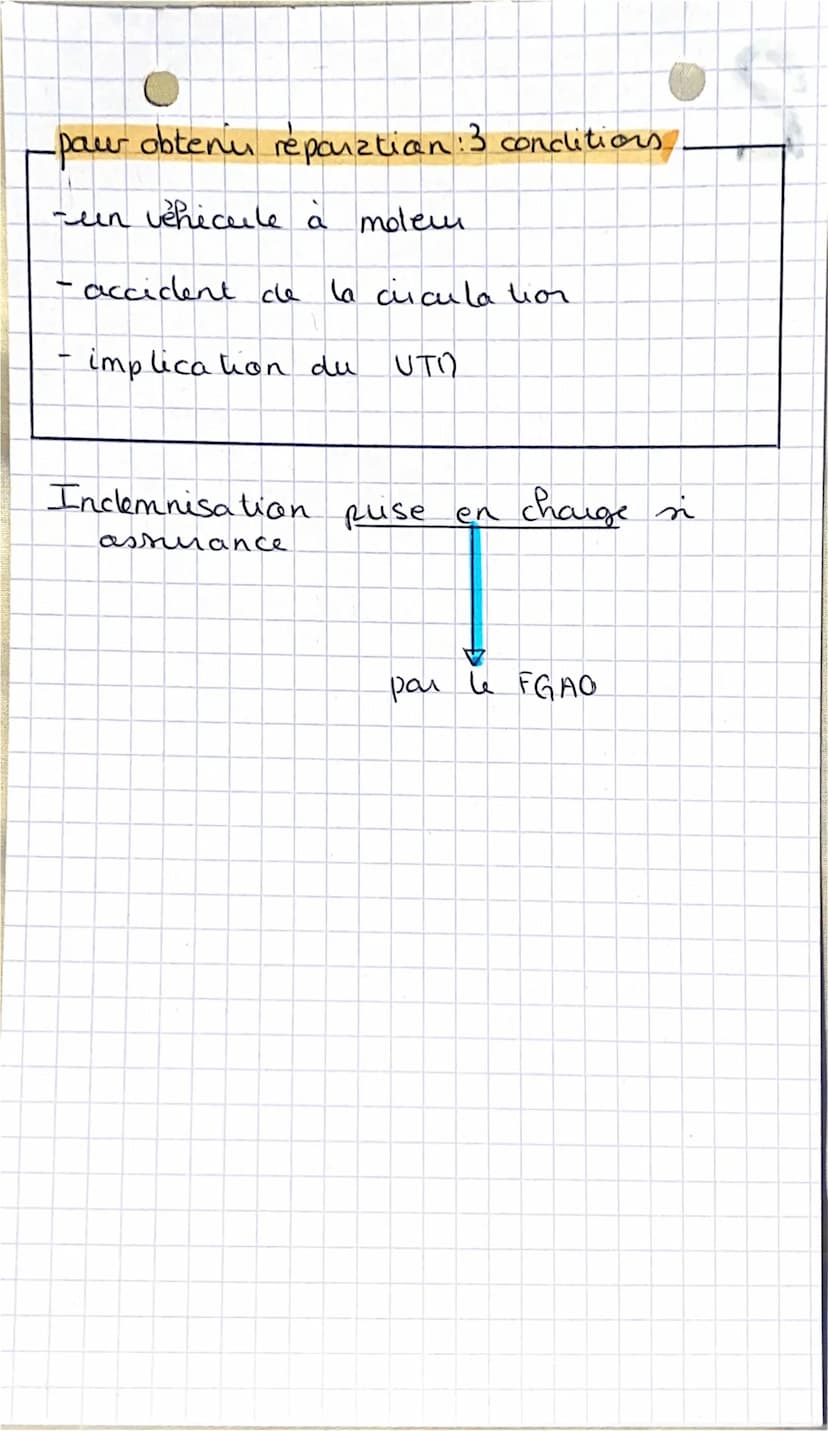 pour obtenir réparation : 3 conditions
- un véhicule à moteur
- accident de la circulation
- implication du VTM
Indemnisation prise en charge si
assurance
par le FGAO